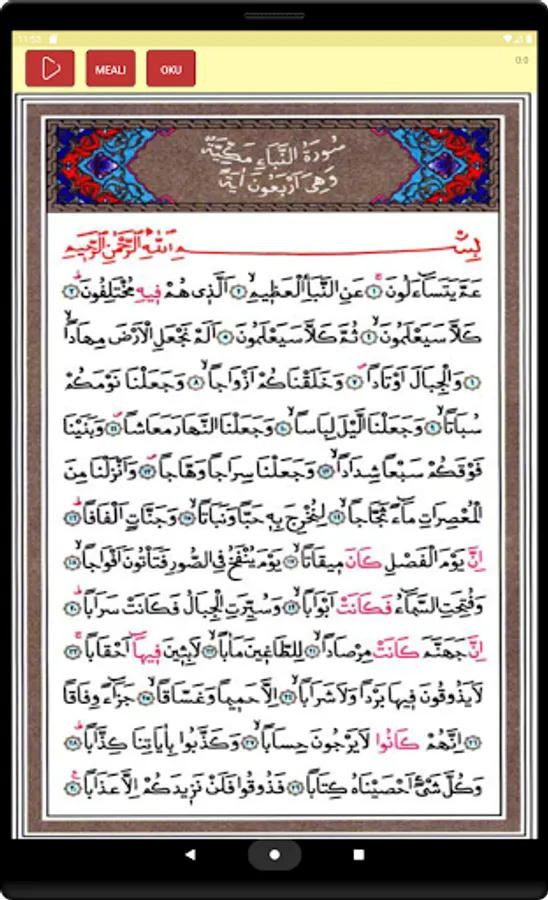 11:53
MEALI
OKU
0:0
سُورَةُ النَّبَأِ مَكِّيَّةٌ
وَهِيَ اَرْبَعُونَ اٰيَةً
بِسْمِ اللّٰهِ الرَّحْمٰنِ الرَّحِيمِ
عَمَّ يَتَسَاءَلُونَ ﴿١﴾ عَنِ النَّبَأِ الْعَظِيمِ ﴿٢﴾ اَلَّذِى هُمْ فِيهِ مُخْتَلِفُونَ ﴿٣﴾
كَلَّا سَيَعْلَمُونَ ﴿٤﴾ ثُمَّ كَلَّا سَيَعْلَمُونَ ﴿٥﴾ اَلَمْ نَجْعَلِ الْاَرْضَ مِهَاداً
﴿٦﴾ وَالْجِبَالَ اَوْتَاداً ﴿٧﴾ وَخَلَقْنَاكُمْ اَزْوَاجاً ﴿٨﴾ وَجَعَلْنَا نَوْمَكُمْ
سُبَاتاً ﴿٩﴾ وَجَعَلْنَا الَّيْلَ لِبَاساً ﴿١٠﴾ وَجَعَلْنَا النَّهَارَ مَعَاشاً ﴿١١﴾ وَبَنَيْنَا
فَوْقَكُمْ سَبْعاً شِدَاداً ﴿١٢﴾ وَجَعَلْنَا سِرَاجاً وَهَّاجاً ﴿١٣﴾ وَاَنْزَلْنَا مِنَ
الْمُعْصِرَاتِ مَاءً ثَجَّاجاً ﴿١٤﴾ لِنُخْرِجَ بِهِ حَبّاً وَنَبَاتاً ﴿١٥﴾ وَجَنَّاتٍ اَلْفَافاً ﴿١٦﴾
اِنَّ يَوْمَ الْفَصْلِ كَانَ مِيقَاتاً ﴿١٧﴾ يَوْمَ يُنْفَخُ فِى الصُّورِ فَتَأْتُونَ اَفْوَاجاً ﴿١٨﴾
وَفُتِحَتِ السَّمَاءُ فَكَانَتْ اَبْوَاباً ﴿١٩﴾ وَسُيِّرَتِ الْجِبَالُ فَكَانَتْ سَرَاباً ﴿٢٠﴾
اِنَّ جَهَنَّمَ كَانَتْ مِرْصَاداً ﴿٢١﴾ لِلطَّاغِينَ مَاٰباً ﴿٢٢﴾ لَابِثِينَ فِيهَا اَحْقَاباً ﴿٢٣﴾
لَا يَذُوقُونَ فِيهَا بَرْداً وَلَا شَرَاباً ﴿٢٤﴾ اِلَّا حَمِيماً وَغَسَّاقاً ﴿٢٥﴾ جَزَاءً وِفَاقاً
﴿٢٦﴾ اِنَّهُمْ كَانُوا لَا يَرْجُونَ حِسَاباً ﴿٢٧﴾ وَكَذَّبُوا بِاٰيَاتِنَا كِذَّاباً ﴿٢٨﴾
وَكُلَّ شَىْءٍ اَحْصَيْنَاهُ كِتَاباً ﴿٢٩﴾ فَذُوقُوا فَلَنْ نَزِيدَكُمْ اِلَّا عَذَاباً ﴿٣٠﴾